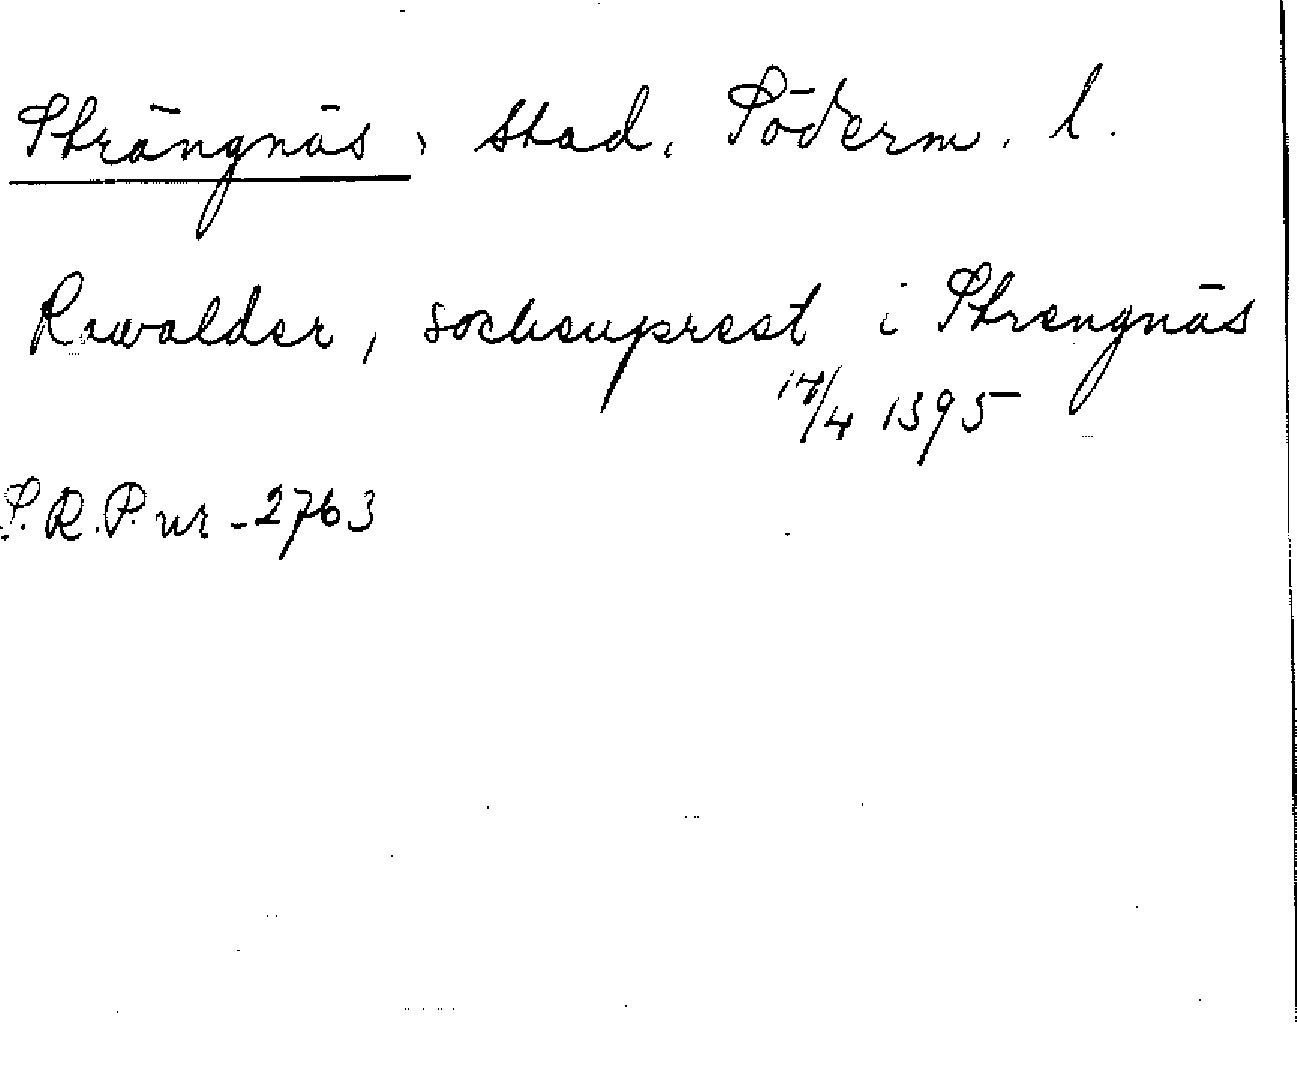 Strängnäs, stad, Söderm. l.
Rawalder, sockenprest i Strengnäs
17/4 1395
S.R.P. nr - 2763